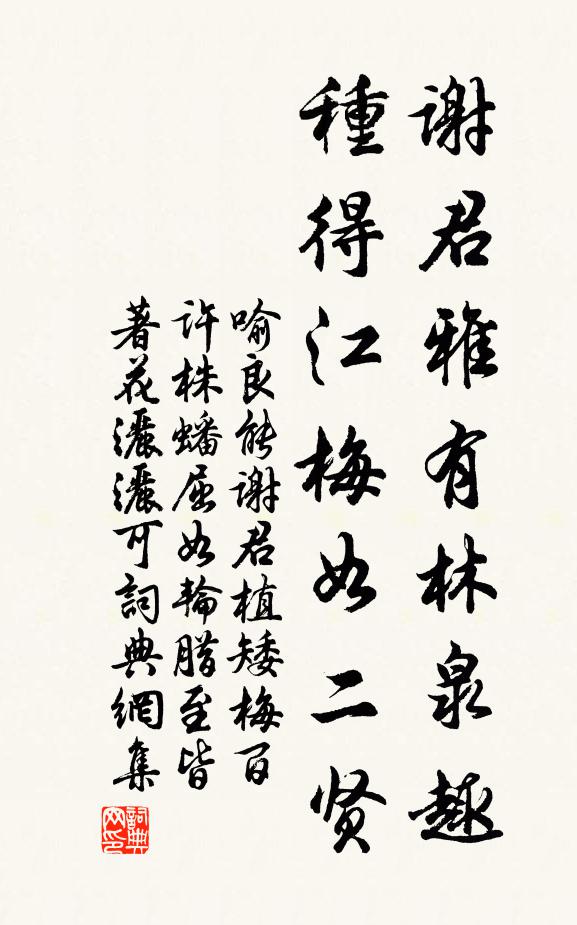 謝君雅有林泉趣
種得江梅如二贤
喻良能謝君植矮梅百
許株蟠屈如輪腊至皆
著花灑灑可詞典網集
詞典
网印